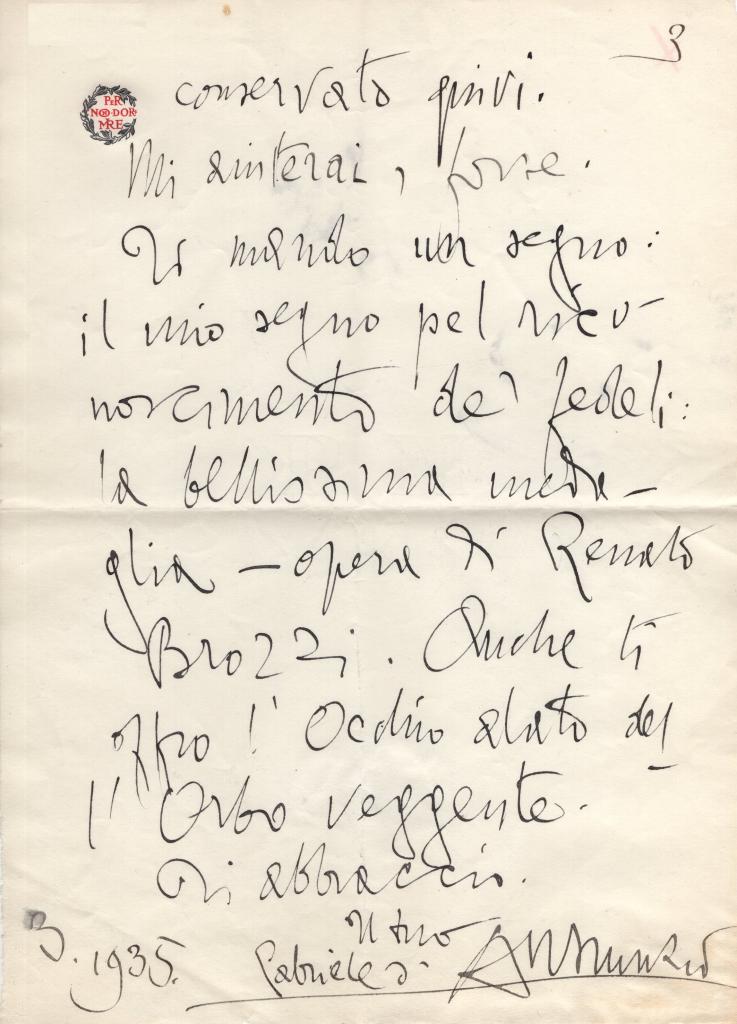 3
PER
NON DOR
MIRE
conservato quivi.
Mi aiuterai, forse.
Ti mando un segno:
il mio segno pel rico-
noscimento de' fedeli:
la bellissima meda-
glia – opera di Renato
Brozzi. Anche ti
offro l'Occhio alato del-
l'Orbo veggente.
Ti abbraccio.
Il tuo
3. 1935. Gabriele d'Annunzio